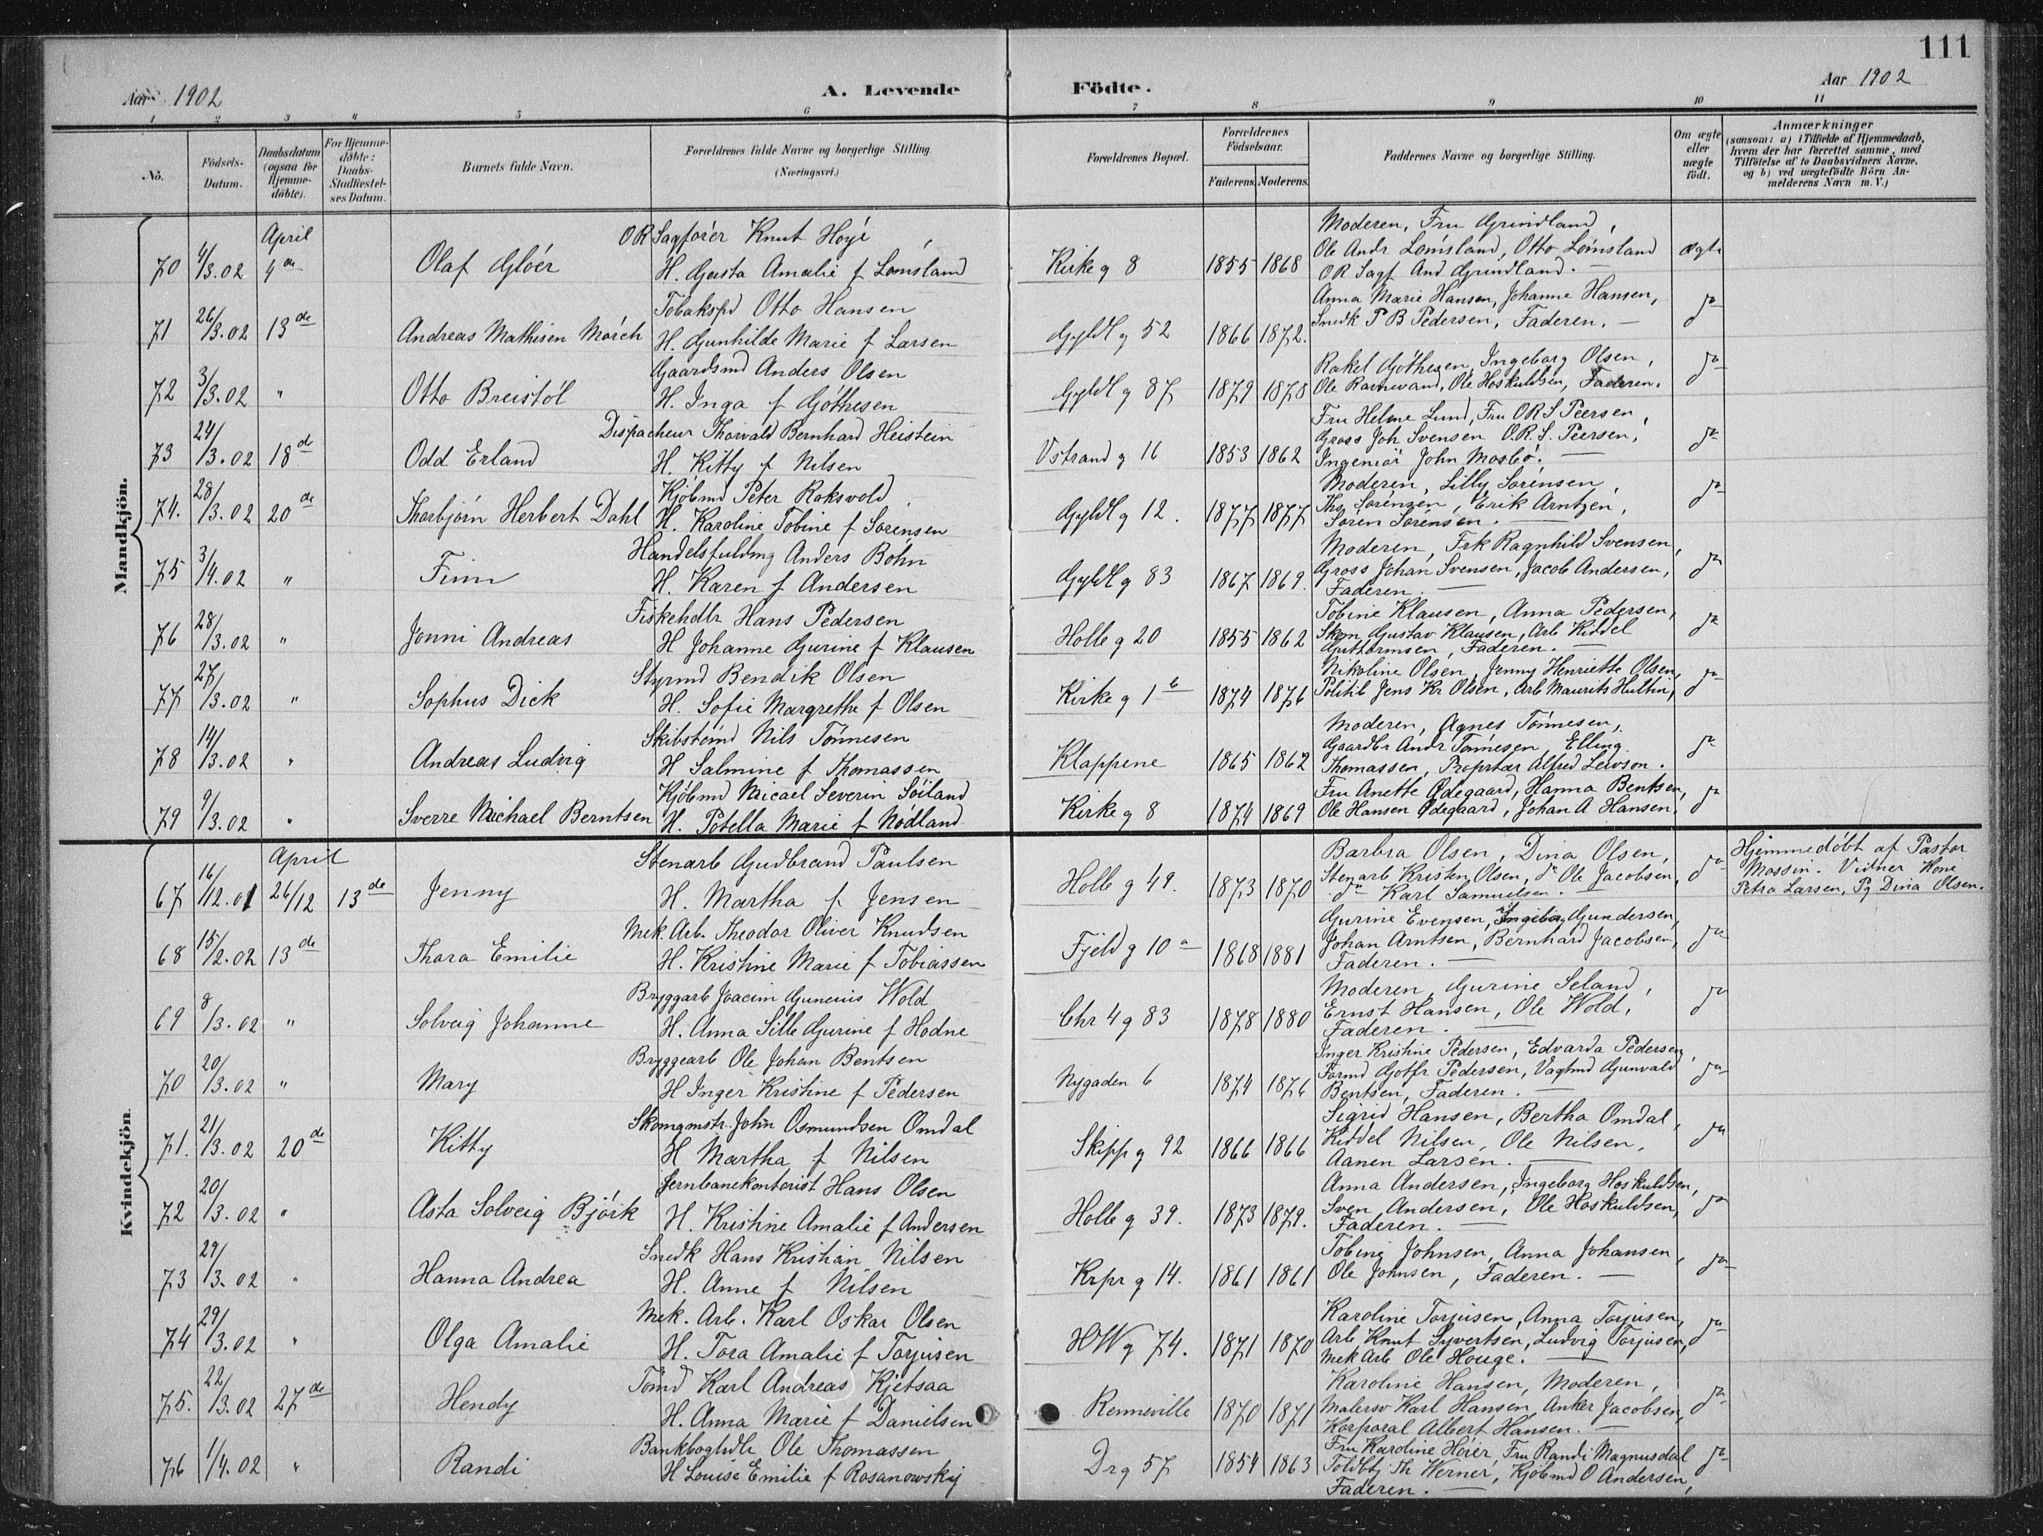 111
Aar 1902 A. Levende Födte. Aar 1902
1 2 3 4 5 6 7 8 9 10 11
No.
Födsels-Datum.
Daabsdatum (ogsaa for Hjemme-döbte).
For Hjemme-döbte: Daabs-Stadfæstel-ses Datum.
Barnets fulde Navn.
Forældrenes fulde Navne og borgerlige Stilling. (Næringsvei.)
Forældrenes Bopæl.
Forældrenes Födselsaar.
Faderens. Moderens.
Faddernes Navne og borgerlige Stilling.
Om ægte eller uægte födt.
Anmærkninger
(saasom: a) i Tilfælde af Hjemmedaab, hvem der har forrettet samme, med Tilföielse af to Daabsvidners Navne, og b) ved uægtefödte Börn An-melderens Navn m. V.)
Mandkjön.
April
O R Sagfører Knut Høye
Moderen, Fru Grindland,
70 4/3.02 4de Olaf Gløer H. Gusta Amalie f Lømsland Kirkeg 8 1855 1868 Ole Andr Lømsland, Otto Lømsland ægte
OR Sagf And Grindland. —
Tobakspd Otto Hansen
Anna Marie Hansen, Johanne Hansen,
71 26/3.02 13de Andreas Mathisen Mørch H. Gunhilde Marie f Larsen Gyldl g 52 1866 1872. Snedk P B Pedersen, Faderen. — do
Gaardsmd Anders Olsen
Rakel Gøthesen, Ingeborg Olsen,
72 3/3.02 " Otto Breistøl H. Inga f Gøthesen Gyldl g 87 1879 1878 Ole Ravnevand, Ole Hoskuldsen, Faderen. do
Dispacheur Thorvald Bernhard Heistein
Fru Helene Lund, Fru O.R.S. Peersen,
73 24/3.02 18de Odd Erland H. Kitty f Nilsen Vstrand g 16 1853 1862 Gross Joh Svensen O.R.S. Peersen, do
Ingeniör John Mosbö. —
Kjöbmd Peter Roksvold
Moderen, Lilly Sørensen,
74. 28/3.02 20de Thorbjørn Herbert Dahl H. Karoline Tobine f Sørensen Gyldl g 12. 1877 1877 Ths Sørensen, Erik Arntzen, do
Søren Sørensen. —
Handelsfuldmg Anders Bohn
Moderen, Frk Ragnhild Svensen,
75 3/4.02 " Finn H. Karen f Andersen Gyldl g 83 1867 1869. Gross Johan Svensen, Jacob Andersen, do
Faderen. —
Fiskehdlr Hans Pedersen
Tobine Klausen, Anna Pedersen,
76 28/3.02 " Jonni Andreas H Johanne Gurine f Klausen Holbg 20 1855 1862 Skom Gustav Klausen, Arb Kiddel do
Guttormsen, Faderen. —
Styrmd Bendik Olsen
Nikoline Olsen, Jenny Henriette Olsen,
77 27/3.02 " Sophus Dick H. Sofie Margrethe f Olsen Kirkeg 1b 1874 1876 Politib Jens Kr Olsen, Arb Maurits Hultin, do
Skibstømd Nils Tønnesen
Moderen, Agnes Tønnesen,
78 14/3.02 " Andreas Ludvig H Salmine f Thomassen Klappene 1865 1862 Gaardbr Andr Tønnesen, Elling do
Thomassen, Proprtær Alfred Lewson.
Kjöbmd Micael Severin Söiland
Fru Anette Ødegaard, Hanna Bentsen,
79 9/3.02 " Sverre Michael Berntsen H. Potella Marie f Nødland Kirkeg 8 1874 1869 Ole Hansen Ødegaard, Johan A Hansen. do
Kvindekjön.
April
Stenarb Gudbrand Paulsen
Barbra Olsen, Dina Olsen,
67 16/12.01 26/12 13de Jenny H. Martha f Jensen Holbg 49. 1873 1870 Stenarb Kristen Olsen, do Ole Jacobsen, do
do Karl Samuelsen.
Hjemmedøbt af Pastor
Mossin. Vidner Kone
Petra Larsen, Pg Dina Olsen.
Mek. Arb. Theodor Oliver Knudsen
Gurine Evensen, Ingebg Gundersen,
68 15/2.02 13de Thara Emilie H. Kristine Marie f Tobiassen Fjeldg 10a 1868 1881 Johan Arntsen, Bernhard Jacobsen, do
Faderen. —
Bryggarb Joacim Gunerius Wold
Moderen, Gurine Seland,
69 8/3.02 " Solveig Johanne H. Anna Sille Gurine f Hodne Chr 4 g 83 1878 1880 Ernst Hansen, Ole Wold, do
Faderen. —
Bryggearb Ole Johan Bentsen
Inger Kristine Pedersen, Edvarda Pedersen,
70 20/3.02 " Mary H Inger Kristine f Pedersen Nygaden 6 1874 1876 Formd Gotfr Pedersen, Vagtmd Gunvald do
Bentsen, Faderen. —
Skomgmstr John Osmundsen Omdal
Sigrid Hansen, Bertha Omdal,
71. 21/3.02 20de Kitty H Martha f Nilsen Skippg 92 1866 1866 Kiddel Nilsen, Ole Nilsen, do
Aanen Larsen. —
Jernbanekontorist Hans Olsen
Anna Andersen, Ingeborg Hoskuldsen,
72 20/3.02 " Asta Solveig Bjørk H. Kristine Amalie f Andersen Holbg 39. 1873 1879. Sven Andersen, Ole Hoskuldsen, do
Faderen. —
Snedk Hans Kristian Nilsen
Tobine Johnsen, Anna Johansen,
73 29/3.02 " Hanna Andrea H. Anne f Nilsen Krprg 14. 1861 1861 Ole Johnsen, Faderen. — do
Mek. Arb. Karl Oskar Olsen
Karoline Torjusen, Anna Torjusen,
74 29/3.02 " Olga Amalie H. Tora Amalie f Torjusen HWg 74. 1871 1870 Arb Knut Syvertsen, Ludvig Torjusen, do
Mek Arb Ole Houge. —
Tømd Karl Andreas Kjetsaa
Karoline Hansen, Moderen,
75. 22/3.02 27de Hendy H. Anna Marie f Danielsen Renneville 1870 1871 Malersv Karl Hansen, Anker Jacobsen, do
Korporal Albert Hansen. —
Bankboghdlr Ole Thomassen
Fru Karoline Høier, Fru Randi Magnusdal
76 1/4.02 " Randi H Louise Emilie f Rosanowskij Drg 57 1854 1863 Toldbtj Th Werner, Kjöbmd O Andersen, do
Faderen. —